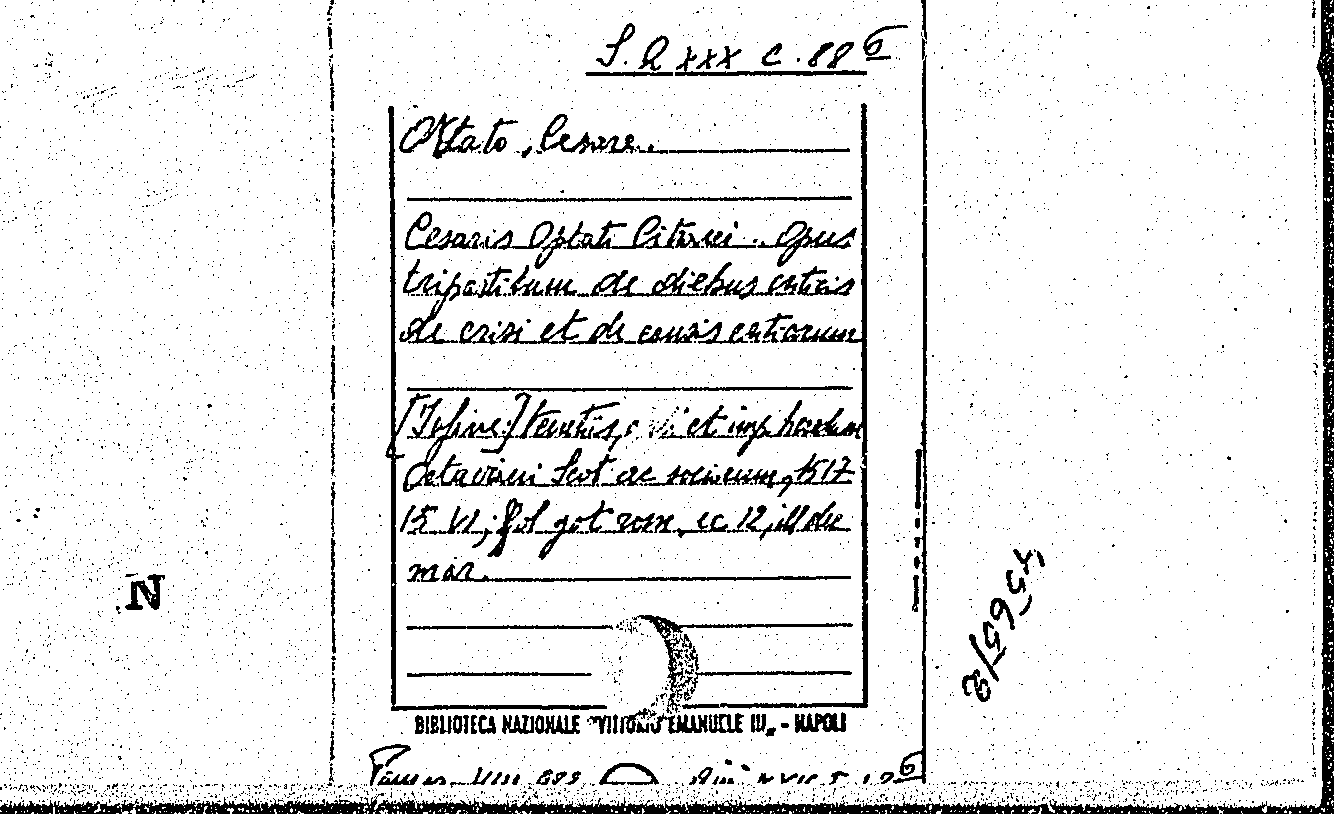 S.Q. XXX C. 88 6
Ottato, Cesare.
Cesaris Optati Citarei .. Opus
tripartitum de diebus criticis
de crisi et de causis criticorum
[In fine:] Venetiis, et imp. haredum
Octaviani Scot ac sociorum, 1517
15 VI; fol got rom, cc 12, ill du
mar.
BIBLIOTECA NAZIONALE "VITTORIO EMANUELE III" - NAPOLI
N
4565/2